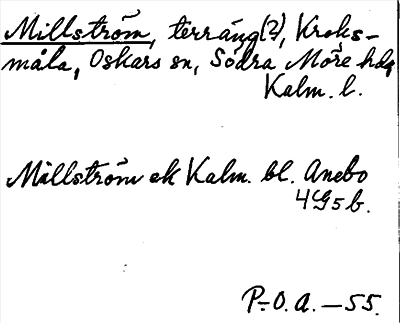 Millström, terräng(?), Kroks-
måla, Oskars sn, Södra Möre hdg
Kalm. l.
Mällström ek Kalm. bl. Anebo
4G5b.
P-O.A.-55.